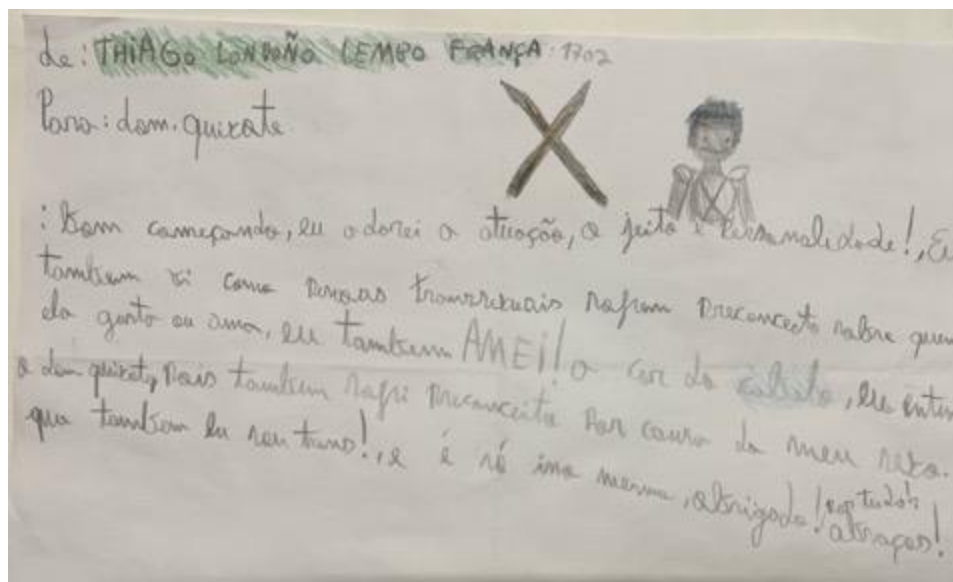 de: THIAGO LONDOÑO LEMPO FRANÇA: 1702
Para: dom. quixote
: Bom começando, eu adorei a atuação, o jeito e Personalidade!, Eu
tambem vi como pessoas transsexuais sofrem preconceito sobre quem
ela gosta ou ama, eu tambem AMEi!! a cor do cabelo, eu enten
o dom quixote, pois tambem sofri preconceito por causa do meu sexo.
que tambem eu sou trans!, e é só isso mesmo, obrigado! por tudo!!
abraços!